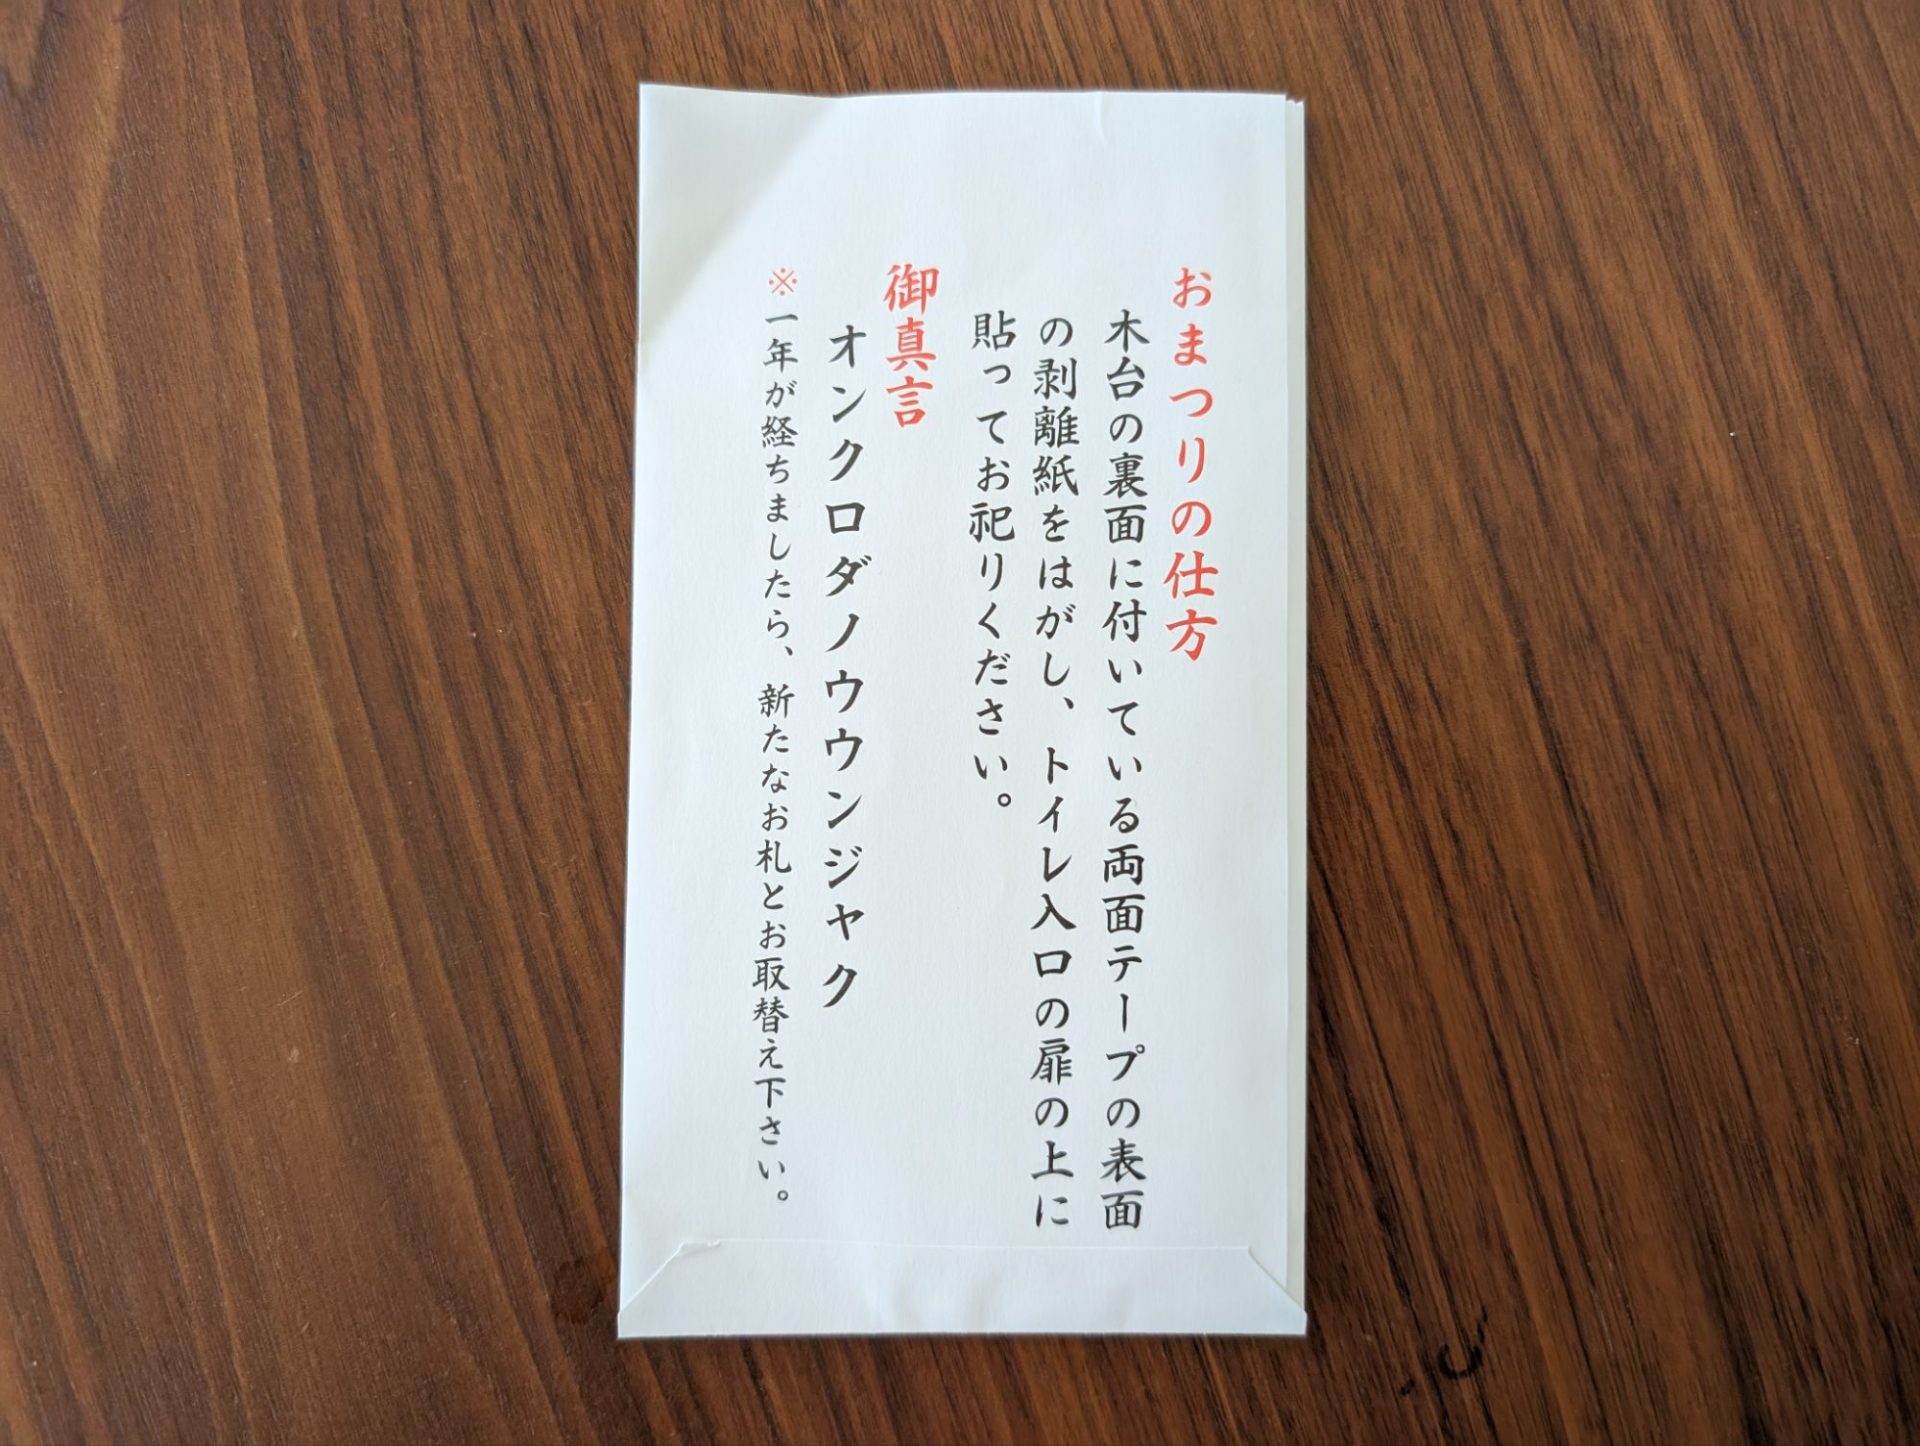 おまつりの仕方
木台の裏面に付いている両面テープの表面
の剥離紙をはがし、トイレ入口の扉の上に
貼ってお祀りください。
御真言
オンクロダノウウンジャク
※一年が経ちましたら、新たなお札とお取替え下さい。